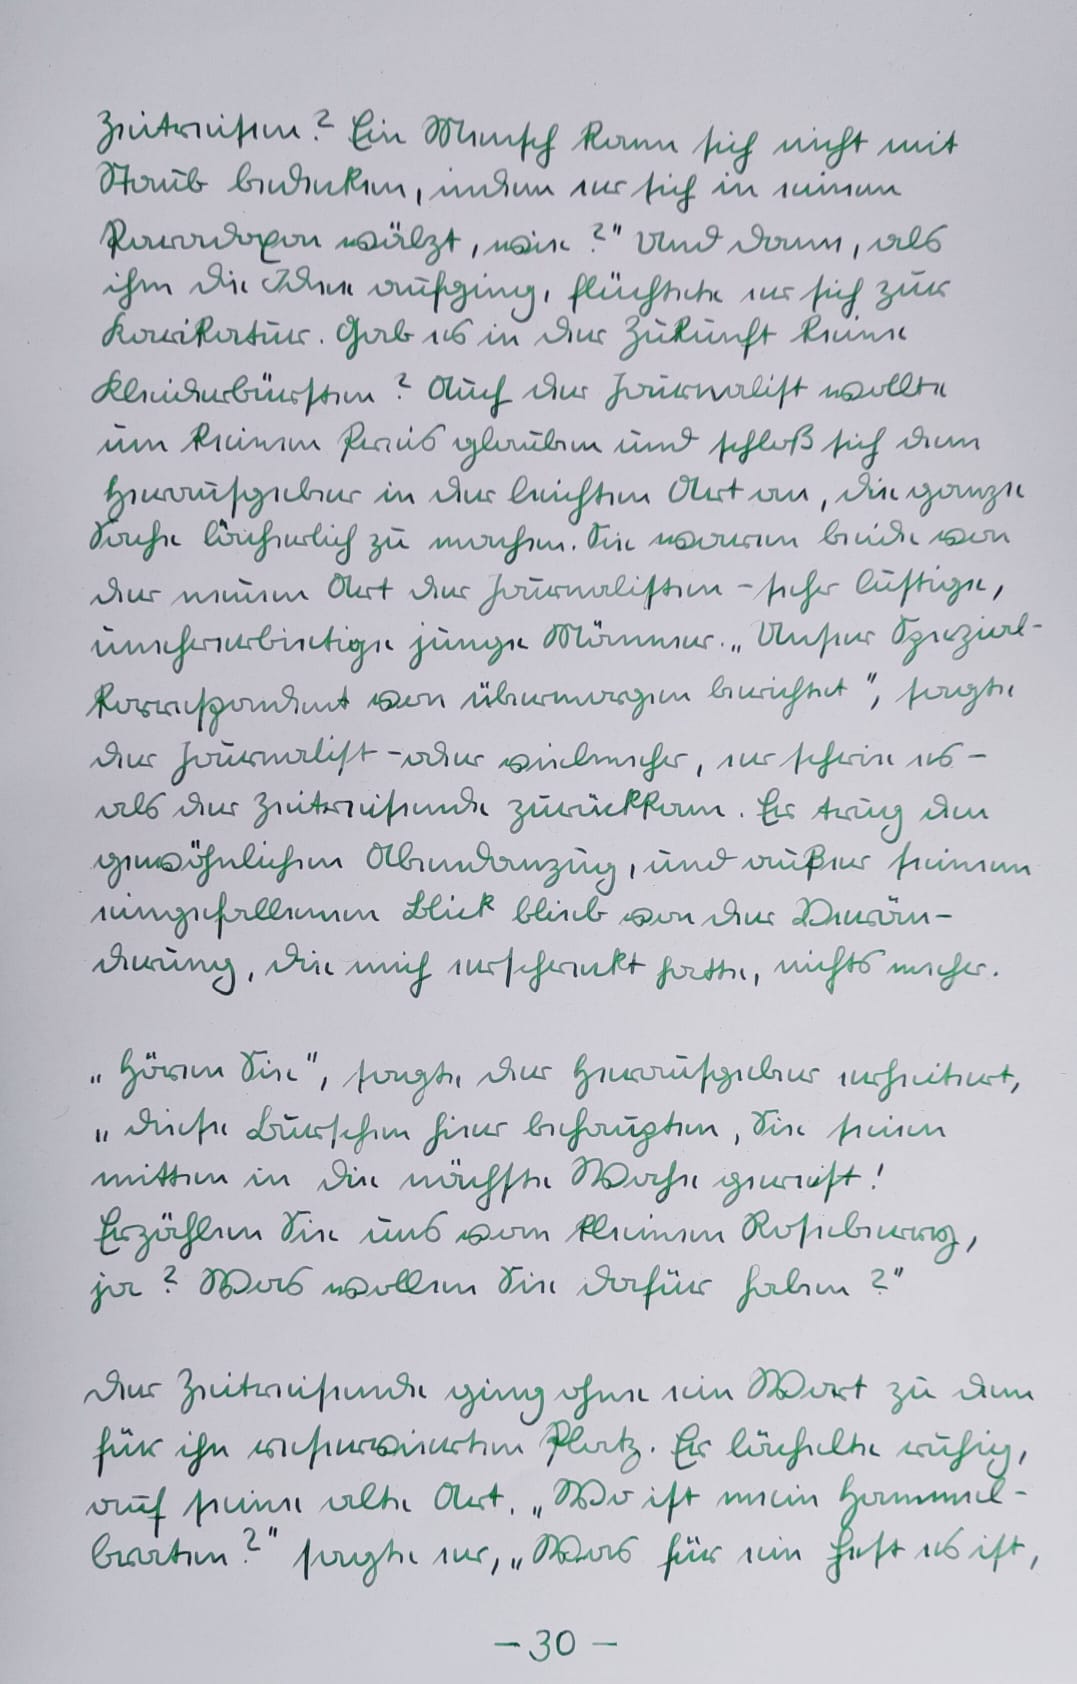 Zeitreisen? Ein Mensch kann sich nicht mit
Staub bedecken, indem er sich in einem
Paradoxon wälzt, wie?" Und dann, als
ihm die Idee aufging, flüchtete er sich zur
Karikatur. Gab es in der Zukunft keine
Kleiderbürsten? Auch der Journalist wollte
um keinen Preis glauben und schloß sich dem
Herausgeber in der leichten Art an, die ganze
Sache lächerlich zu machen. Sie waren beide von
der neuen Art der Journalisten – sehr lustige,
unehrerbietige junge Männer. „Unser Spezial-
Korrespondent von übermorgen berichtet", sagte
der Journalist – oder vielmehr, er schrie es –
als der Zeitreisende zurückkam. Er trug den
gewöhnlichen Abendanzug, und außer seinem
eingefallenen Blick blieb von der Verän-
derung, die mich erschreckt hatte, nichts mehr.
„Hören Sie", sagte der Herausgeber erheitert,
„diese Burschen hier behaupten, Sie seien
mitten in die nächste Woche gereist!
Erzählen Sie uns vom kleinen Roseberry,
ja? Was wollen Sie dafür haben?"
Der Zeitreisende ging ohne ein Wort zu dem
für ihn reservierten Platz. Er lächelte ruhig,
auf seine alte Art. „Wo ist mein Hammel-
braten?" sagte er, „Was für ein Fest es ist,
– 30 –